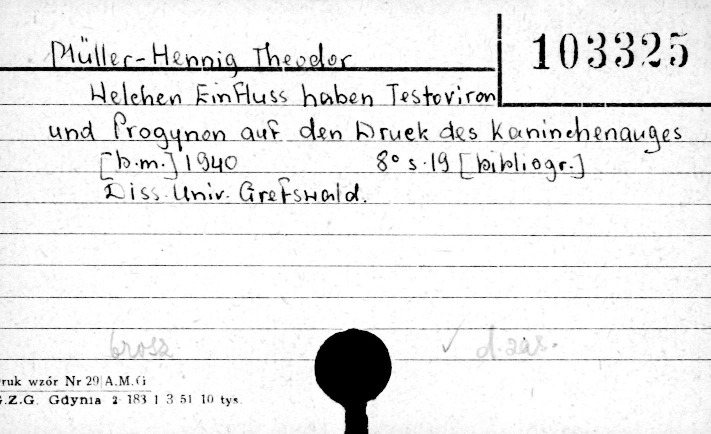 Müller-Hennig Theodor
103325
Welchen Einfluss haben Testoviron
und Progynon auf den Druck des Kaninchenauges
[b.m.] 1940 8° s.19 [bibliogr.]
Diss. Univ. Grefswald.
brosz ✓ d.zas.
ruk wzór Nr 29 A.M.G
.Z.G. Gdynia 2 183 1 3 51 10 tys.